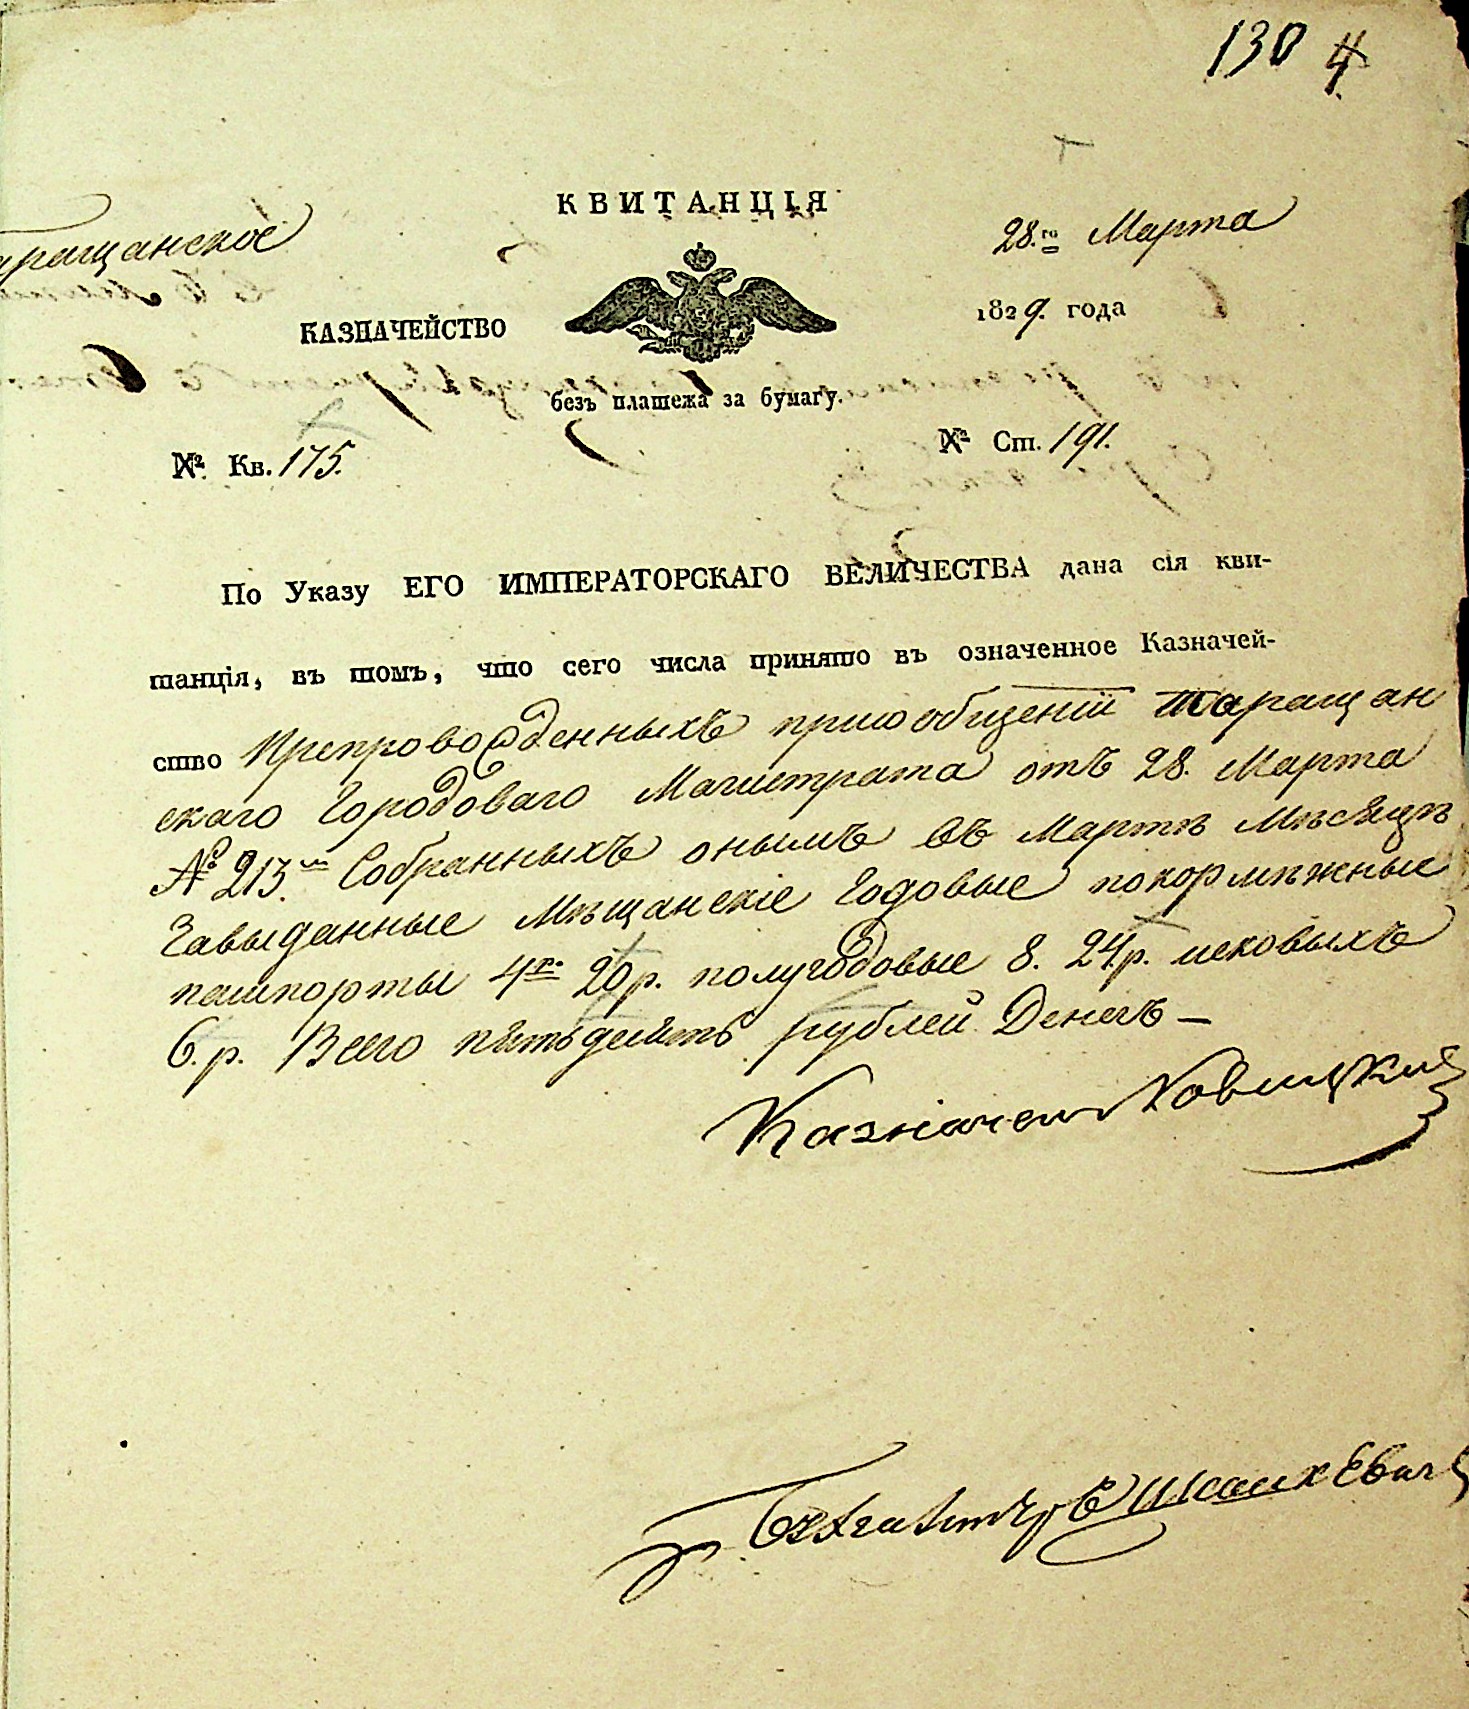 130 4.
КВИТАНЦІЯ
Таращанское
28.го Марта
КАЗНАЧЕЙСТВО
1829. года
безъ платежа за бумагу.
№ Кв. 175.
№ Ст. 191.
По Указу ЕГО ИМПЕРАТОРСКАГО ВЕЛИЧЕСТВА дана сія кви-
танція, въ томъ, что сего числа принято въ означенное Казначей-
ство препровожденныхъ присообщеніи Таращан
скаго Городоваго Магистрата отъ 28. Марта
№ 213. Собранныхъ онымъ въ Мартѣ Мѣсяцѣ
Завыданные Мѣщанскіе Годовые покормѣжные
пашпорты 4. 20 р. полугодовые 8. 24 р. исковыхъ
6. р. Всего пятьдесятъ рублей Денегъ —
Казначей Новицкий
Бухгалтеръ